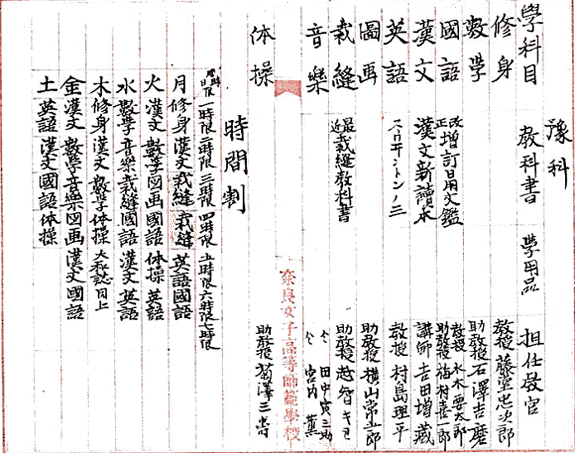 豫科
學科目 教科書 學用品 担任教官
修身 教授 藤堂忠次郎
數學 助教授 石澤吉磨
國語 改正増訂日用文鑑 教授 水木要太郎 助教授 福村喜一郎
漢文 漢文新讀本 講師 吉田増藏
英語 スヰントンノ三 教授 村島理平
圖画 助教授 横山常五郎
裁縫 最近裁縫教科書 助教授 越智キヨ
音樂 仝 田中寅之助 仝 宮内
体操 助教授 菊澤三
時間割
時限 一時限 二時限 三時限 四時限 五時限 六時限 七時限
月 修身 漢文 裁縫 裁縫 英語 國語
火 漢文 數學 図画 國語 体操 英語
水 數學 音樂 裁縫 國語 漢文 英語
木 修身 漢文 數學 体操 同上
金 漢文 數學 音樂 図画 漢文 國語
土 英語 漢文 國語 体操
奈良女子高等師範學校